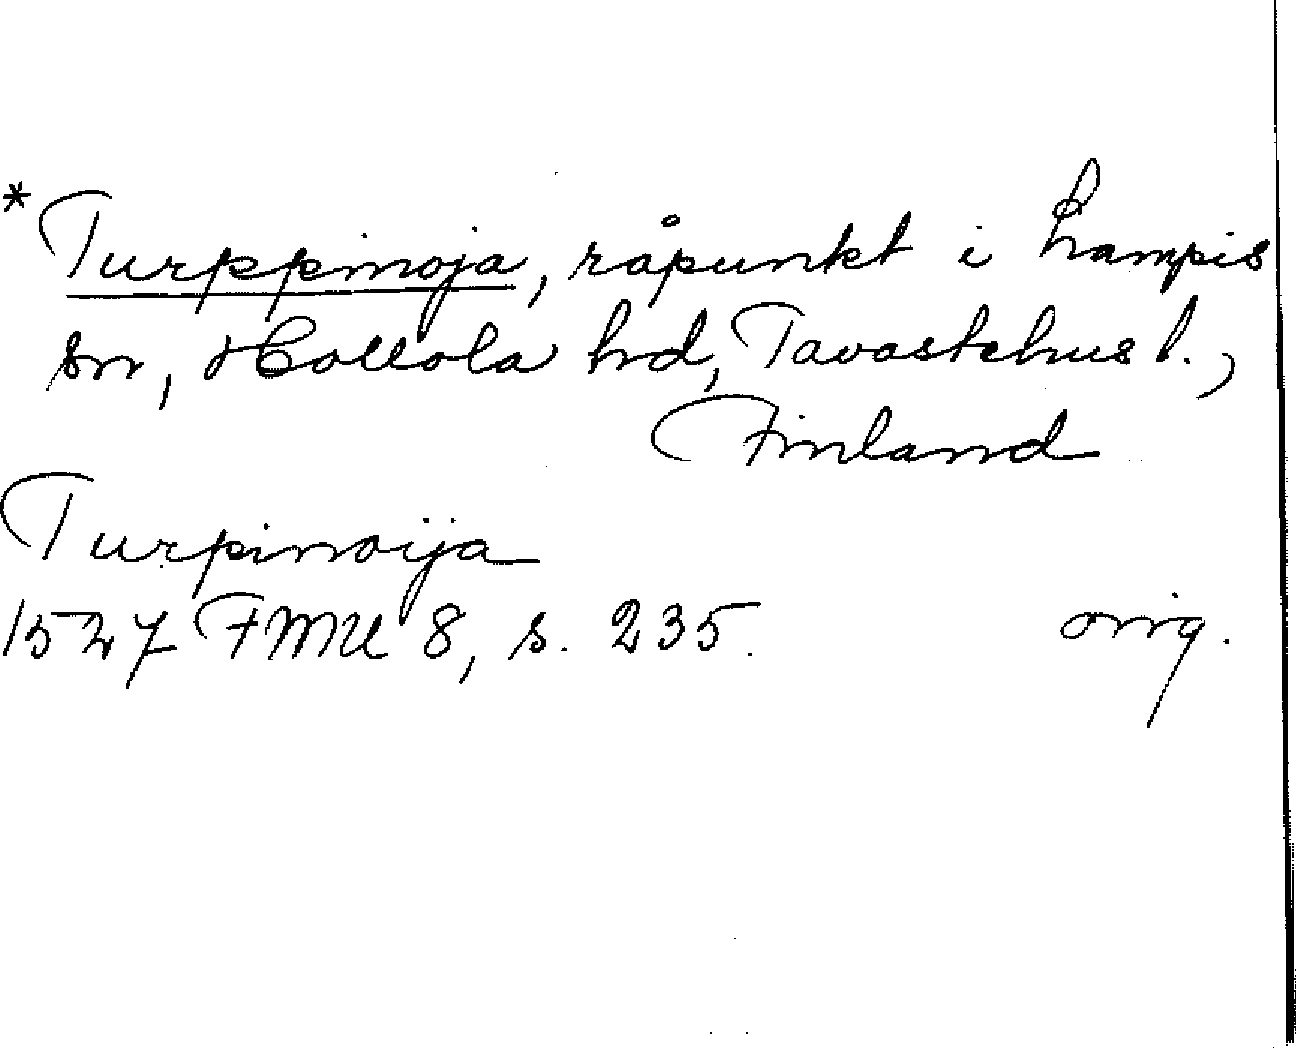 * Turppinoja, råpunkt i Lampis
sn, Hollola hd, Tavastehus l.,
Finland
Turpinoija
1527 FMU 8, s. 235. orig.